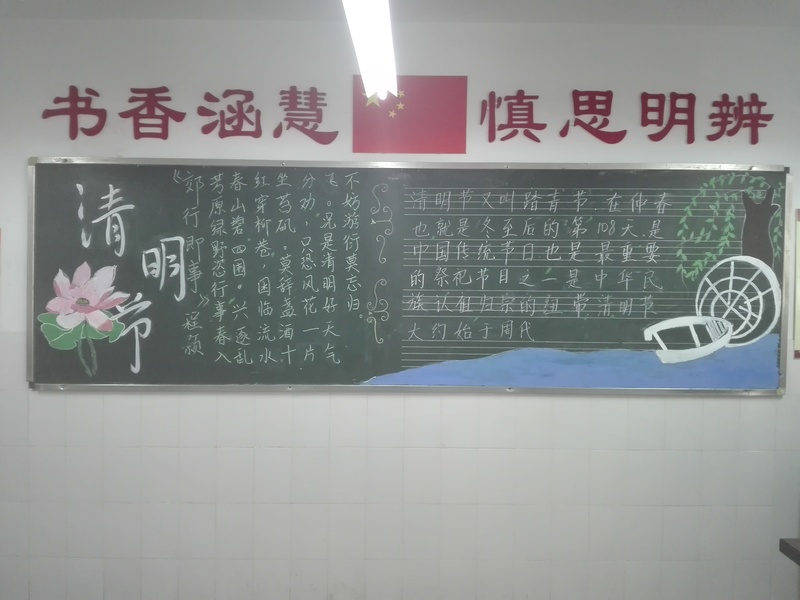 书香涵慧 慎思明辨
清明节
《郊行即事》程颢
芳原绿野恣行事春入
春山碧四围。兴逐乱
红穿柳巷，困临流水
坐苔矶。莫辞盏酒十
分劝，只恐风花一片
飞。况是清明好天气
不妨游衍莫忘归。
清明节又叫踏青节,在仲春
也就是冬至后的第108天,是
中国传统节日,也是最重要
的祭祀节日之一是中华民
族认祖归宗的纽带,清明节
大约始于周代